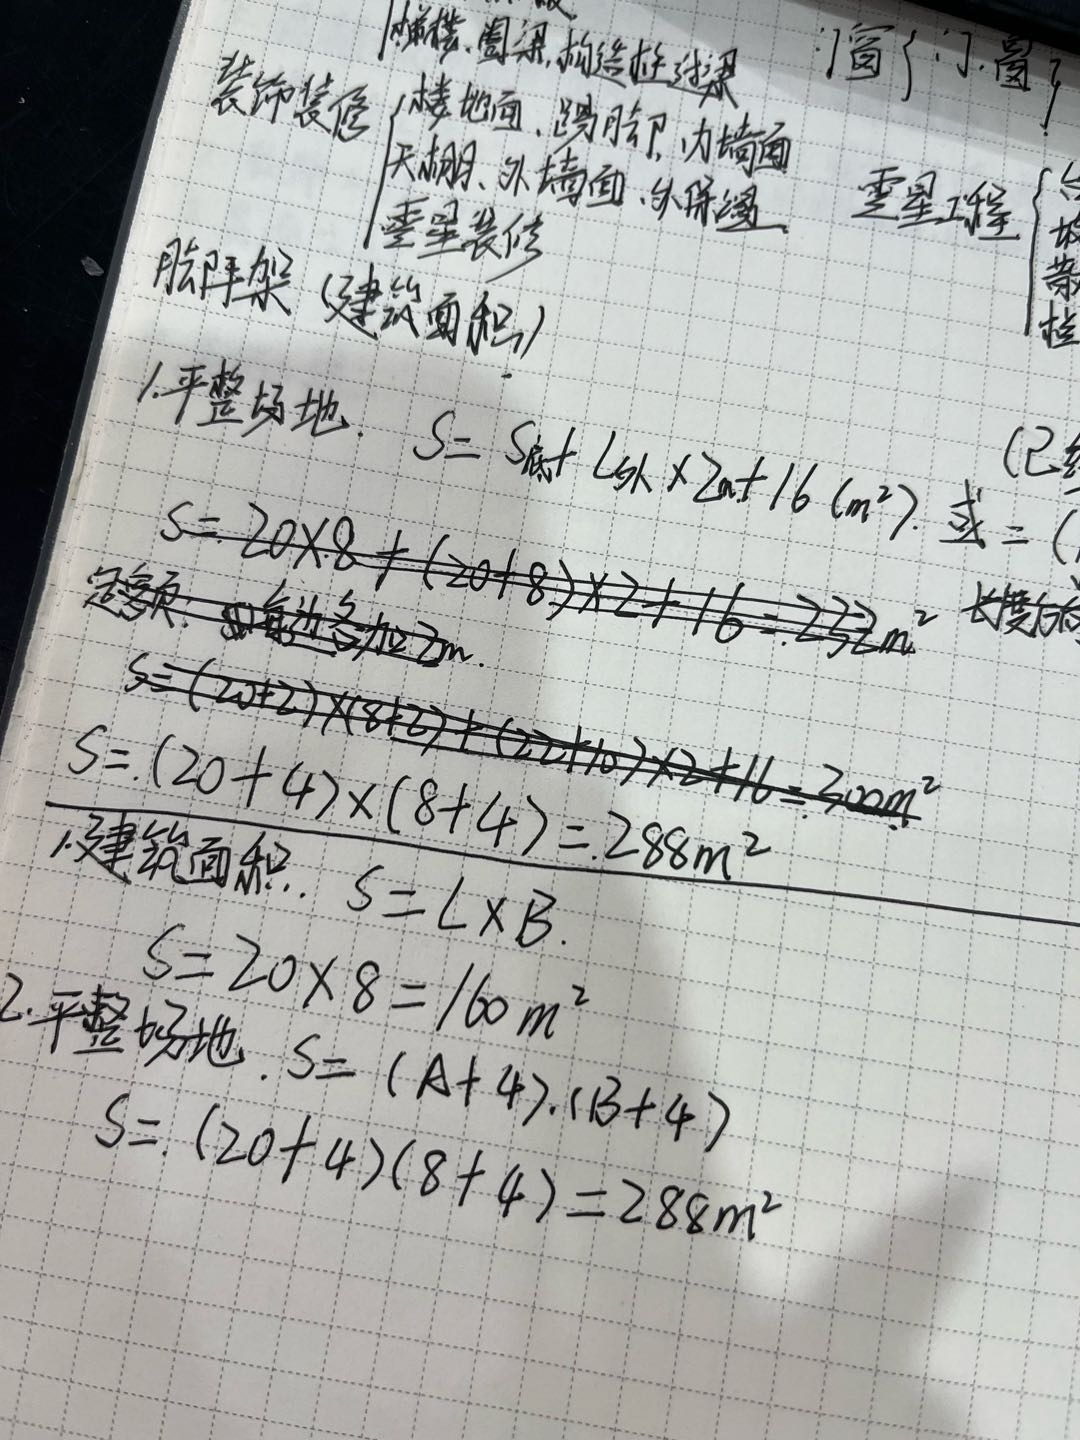 梯楼、圈梁,构造柱过梁
门窗{门.窗}
装饰装修{楼地面、踢脚,内墙面
天棚、外墙面、外保温
零星装修
零星工程{
脚手架(建筑面积)
1.平整场地. S=S底+L外×2m+16(m²).或=(
S=20×8+(20+8)×2+16=232m²
定额: 每边各加2m.
S=(20+2)×(8+2)+(22+10)×2+16=300m²
S=(20+4)×(8+4)=288m²
1.建筑面积. S=L×B.
S=20×8=160m²
2.平整场地. S=(A+4).(B+4)
S=(20+4)(8+4)=288m²